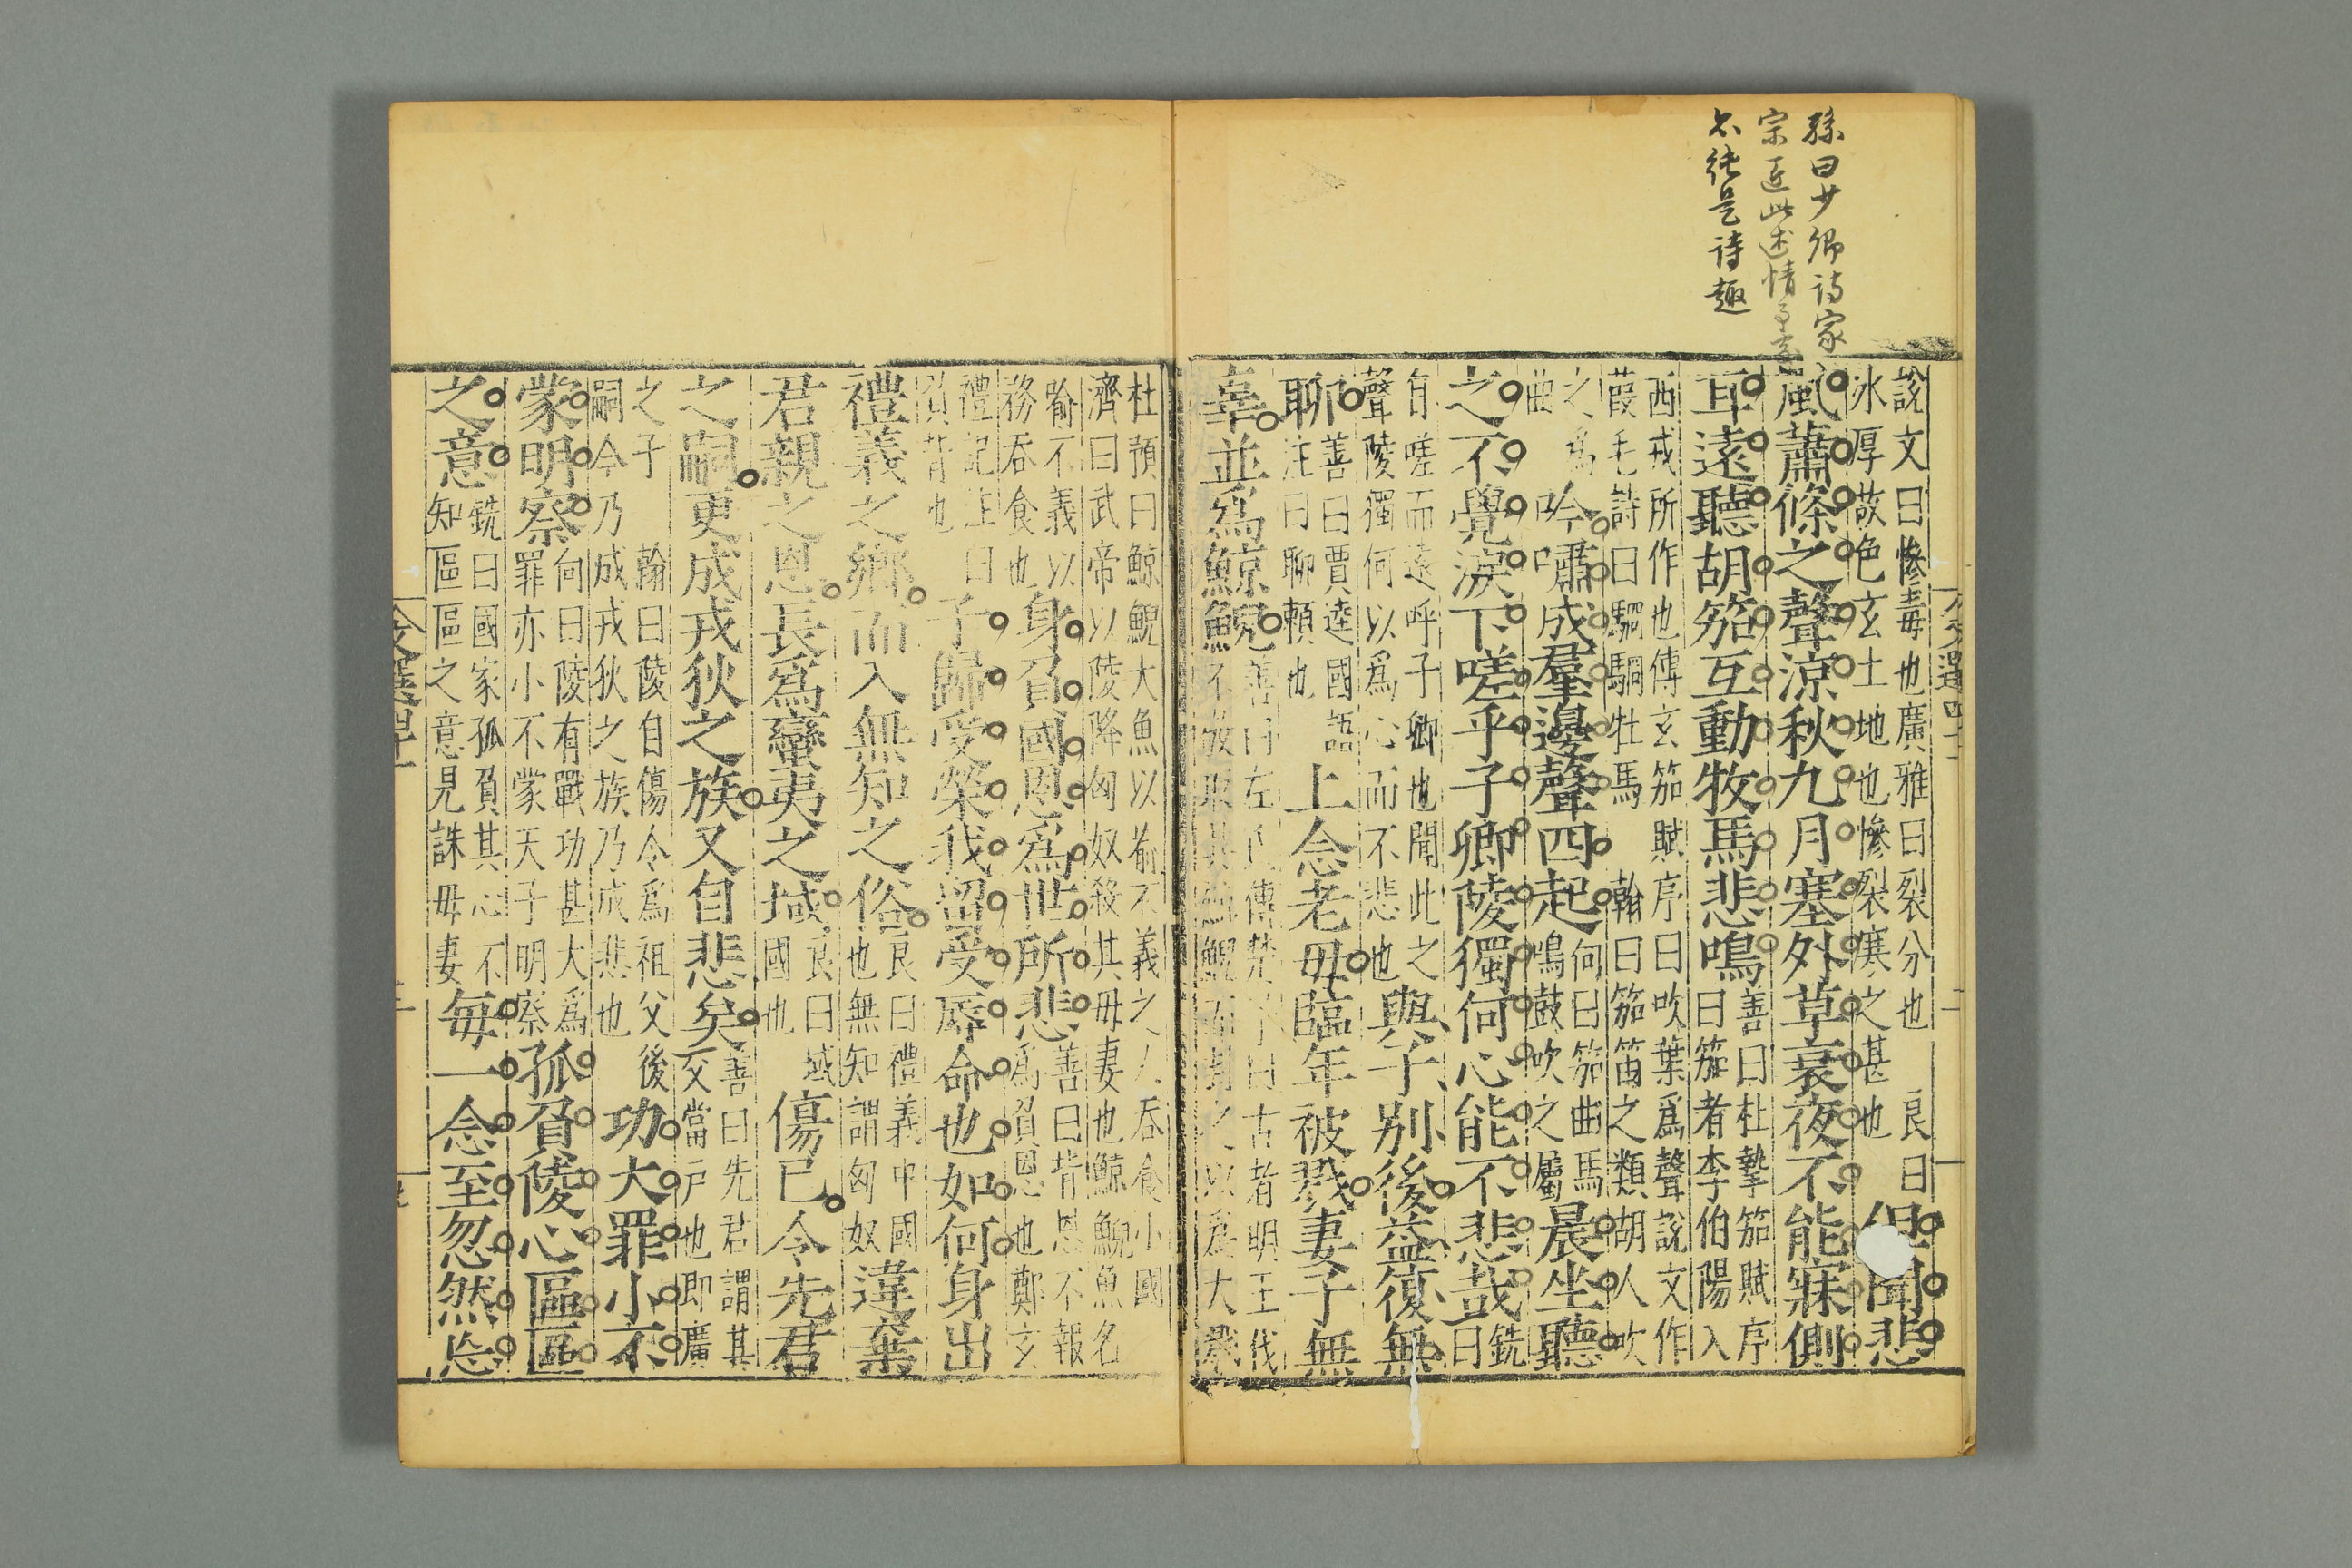 孫曰少卿詩家
宗匠此述情
不純是詩趣
說文曰慘毒也廣雅曰裂分也　良曰
冰厚故色玄土地也慘裂寒之甚也
但聞悲
風蕭條之聲涼秋九月塞外草衰夜不能寐側
耳遠聽胡笳互動牧馬悲鳴
善曰杜摯笳賦序
曰笳者李伯陽入
西戎所作也傳玄笳賦序曰吹葉爲聲說文作
葭毛詩曰駉駉牡馬　翰曰笳笛之類胡人吹
之爲
曲
吟嘯成羣邊聲四起
向曰笳曲馬
鳴鼓吹之屬
晨坐聽
之不覺淚下嗟乎子卿陵獨何心能不悲哉
銑
曰
有嗟而遠呼子卿也聞此之
聲陵獨何以爲心而不悲也
與子別後益復無
聊
善曰賈逵國語
注曰聊賴也
上念老母臨年被戮妻子無
辜並爲鯨鯢
善曰左氏傳楚子曰古者明王伐
不敬取其鯨鯢而封之以爲大戮
杜預曰鯨鯢大魚以喻不義之人吞食小國
濟曰武帝以陵降匈奴殺其母妻也鯨鯢魚名
喻不義以
務吞食也
身負國恩爲世所悲
善曰背恩不報
爲負恩也鄭玄
禮記注曰
負背也
子歸受榮我留受辱命也如何身出
禮義之鄉而入無知之俗
良曰禮義中國
也無知謂匈奴
違棄
君親之恩長爲蠻夷之域
良曰域
國也
傷已令先君
之嗣更成戎狄之族又自悲矣
善曰先君謂其
父當戶也即廣
之子　翰曰陵自傷令爲祖父後
嗣今乃成戎狄之族乃成悲也
功大罪小不
蒙明察
向曰陵有戰功甚大爲
罪亦小不蒙天子明察
孤負陵心區區
之意
銑曰國家孤負其心不
知區區之意見誅母妻
每一念至忽然忘